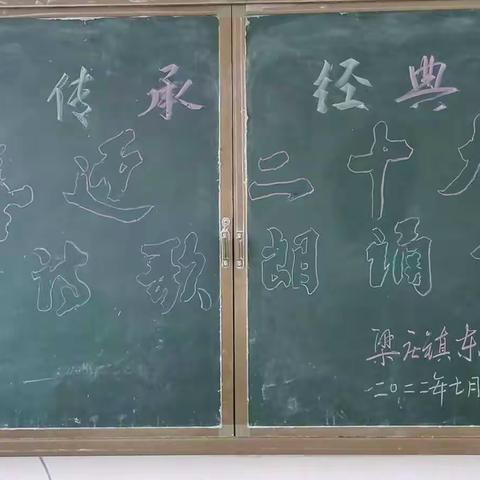 传承 经典
喜迎二十大
诗歌朗诵
梁庄镇东
二〇二二年七月